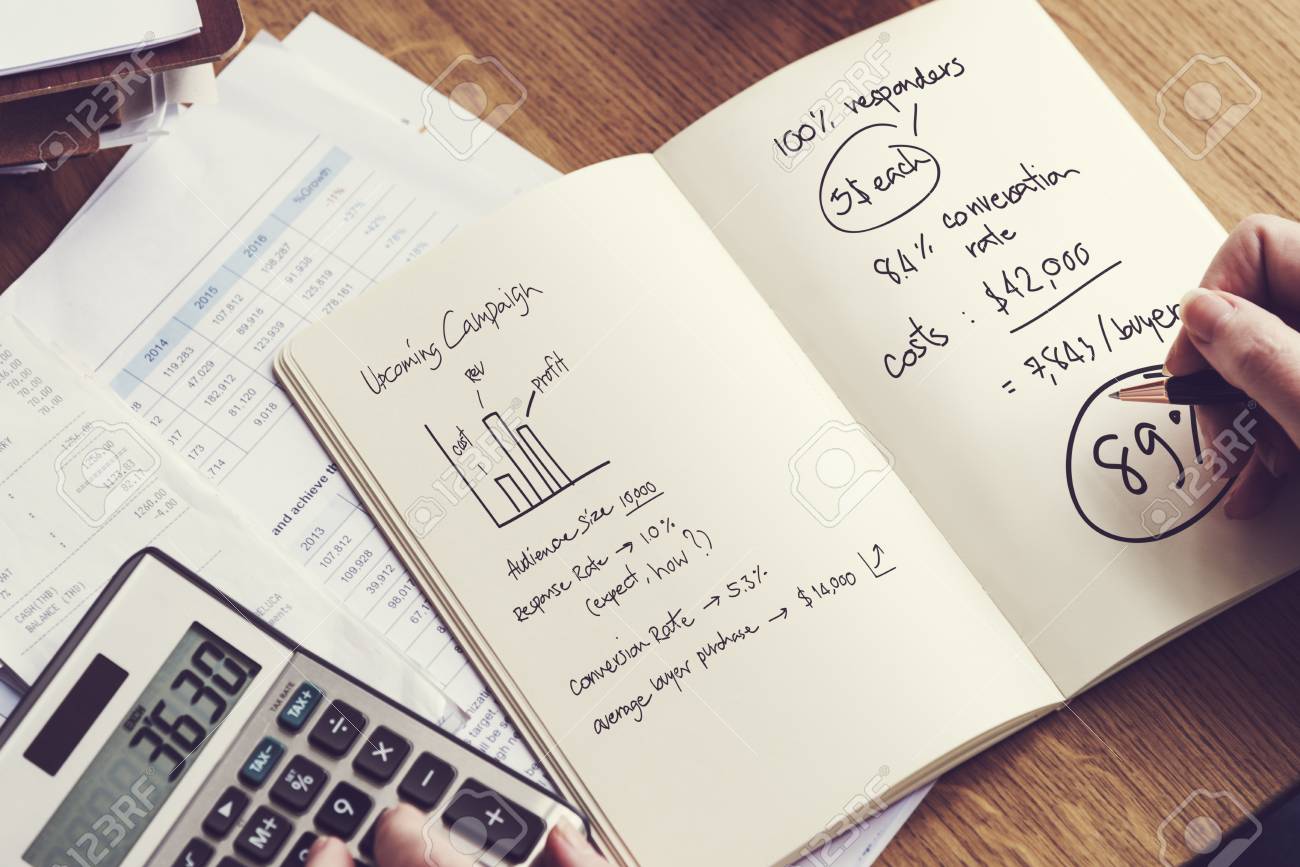 Upcoming Campaign
Cost
Rev
Profit
Audience Size 10,000
Response Rate → 1.0%
(expect, how?)
conversion Rate → 5.3%
average buyer purchase → $14,000
100% responders
5$ each
8.4% conversation
rate
costs : $42,000
= 7,843/buyer
89%
%Growth
2016
2015
2014
-11%
+37%
+42%
+78%
+18%
108,287
91,938
125,819
278,161
107,812
89,918
123,939
119,283
47,029
182,912
81,120
9,018
and achieve th
2013
107,812
109,928
39,912
98,017
1256.00
1256.00
1173.83
82.17
1260.00
-4.00
VAT
CASH(THB)
BALANCE (THB)
70.00
70.00
3'630
TAX RATE
TAX+
TAX-
÷
×
−
+
SET
%
9
M+
▶
123RF